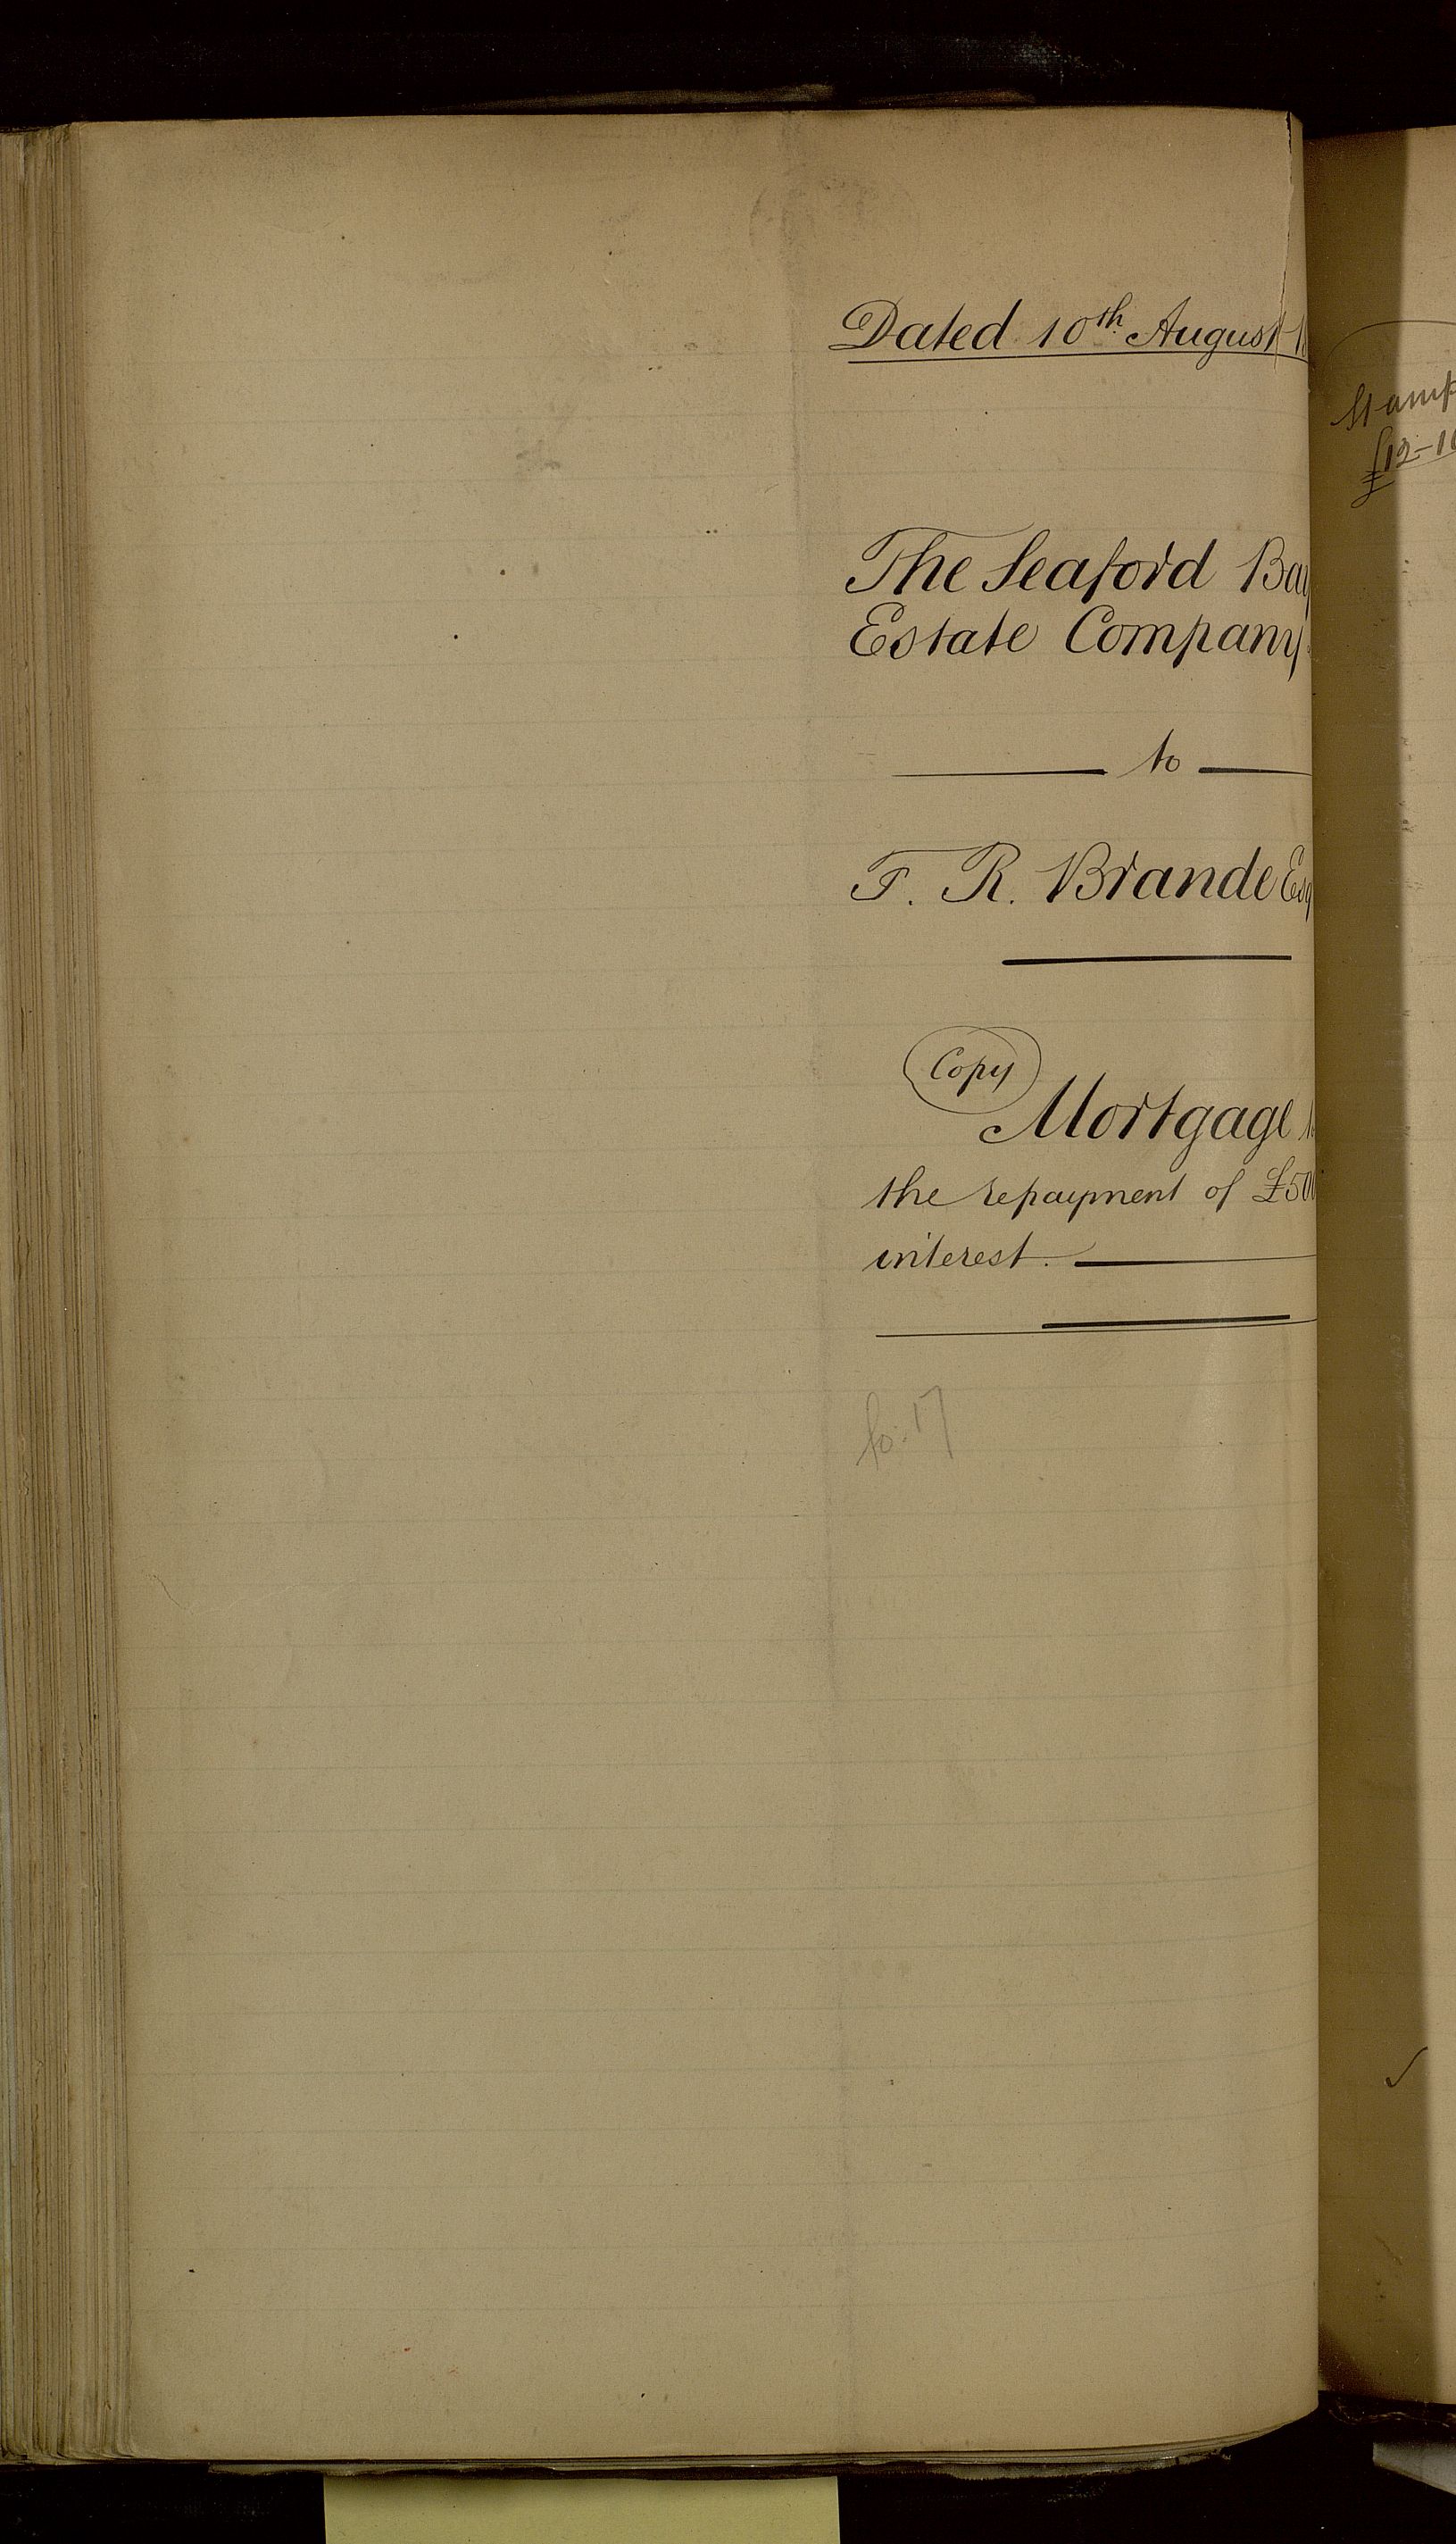 Dated 10th August 1
The Seaford Bay
Estate Company
to
F. R. Brande Esq
Copy
Mortgage
the repayment of £500
interest.
fo. 17
Stamp
£12-10